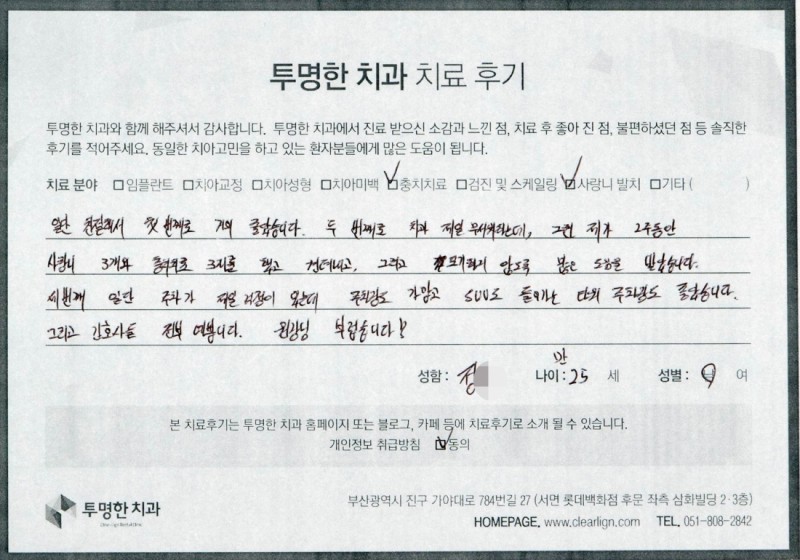 투명한 치과 치료 후기
투명한 치과와 함께 해주셔서 감사합니다. 투명한 치과에서 진료 받으신 소감과 느낀 점, 치료 후 좋아 진 점, 불편하셨던 점 등 솔직한
후기를 적어주세요. 동일한 치아고민을 하고 있는 환자분들에게 많은 도움이 됩니다.
치료 분야 □임플란트 □치아교정 □치아성형 □치아미백 ☑충치치료 □검진 및 스케일링 ☑사랑니 발치 □기타 ( )
일단 친절해서 첫 번째로 거의 좋았습니다. 두 번째로 치과 제일 무서워하는데, 그런 제가 2주동안
사랑니 3개와 충치치료 3개를 했고 견뎌내고, 그리고 포기하지 않도록 많은 도움을 받았습니다.
세번째 일단 주차가 제일 걱정이 였는데 주차장도 가깝고 SUV도 들어가는 타워 주차장도 좋았습니다.
그리고 간호사들 전부 예쁩니다. 원장님 부럽습니다!
성함 : 정 나이 : 만 25 세 성별 : 남 여
본 치료후기는 투명한 치과 홈페이지 또는 블로그, 카페 등에 치료후기로 소개 될 수 있습니다.
개인정보 취급방침 ☑동의
투명한 치과
부산광역시 진구 가야대로 784번길 27 (서면 롯데백화점 후문 좌측 삼회빌딩 2·3층)
HOMEPAGE. www.clearlign.com TEL. 051-808-2842